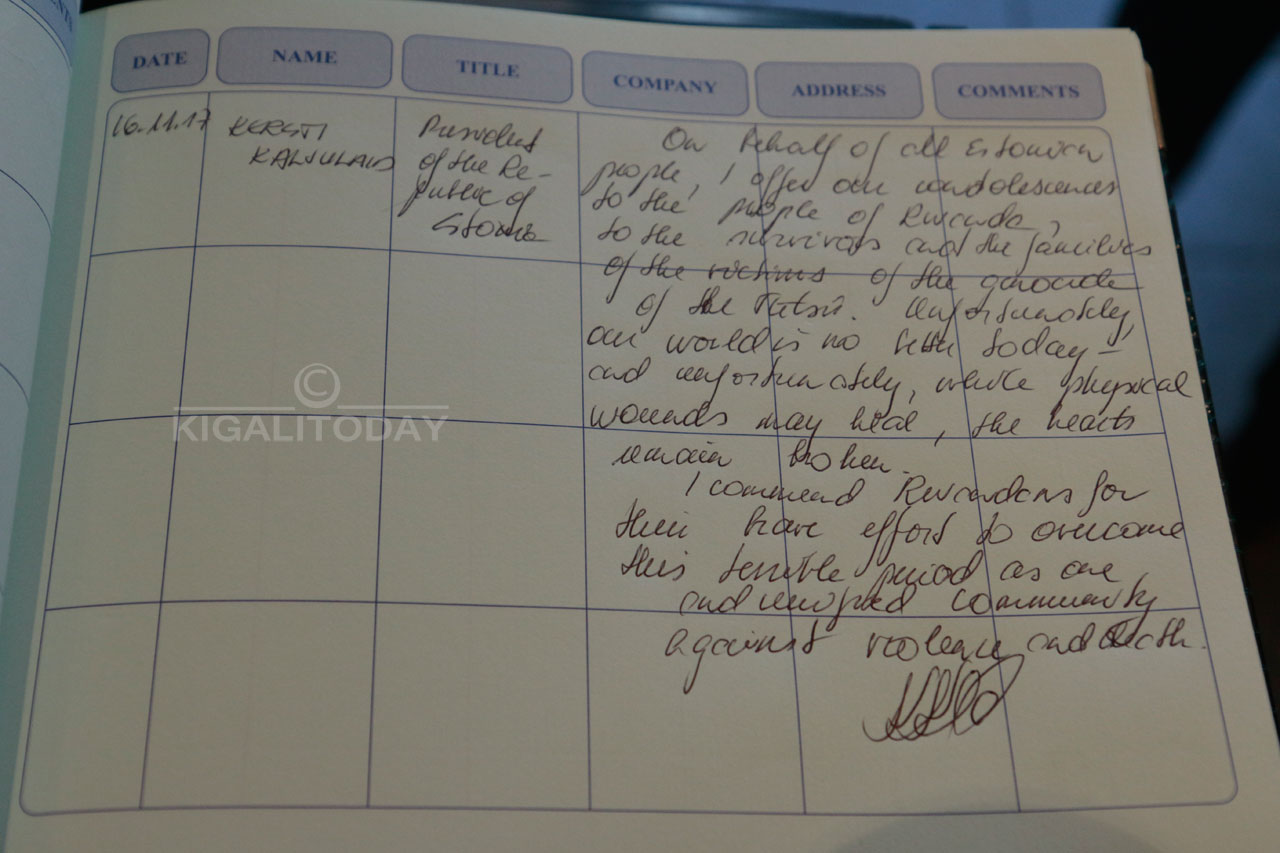 DATE NAME TITLE COMPANY ADDRESS COMMENTS
16.11.17
KERSTI
KALJULAID
President
of the Re-
public of
Estonia
On behalf of all Estonian
people, I offer our condolescences
to the people of Rwanda,
to the survivors and the families
of the victims of the genocide
of the Tutsi. Unfortunately,
our world is no better today –
and unfortunately, while physical
wounds may heal, the hearts
remain broken.
I commend Rwandans for
their brave effort to overcome
this terrible period as one
and unified community
against violence and death.
©
KIGALITODAY